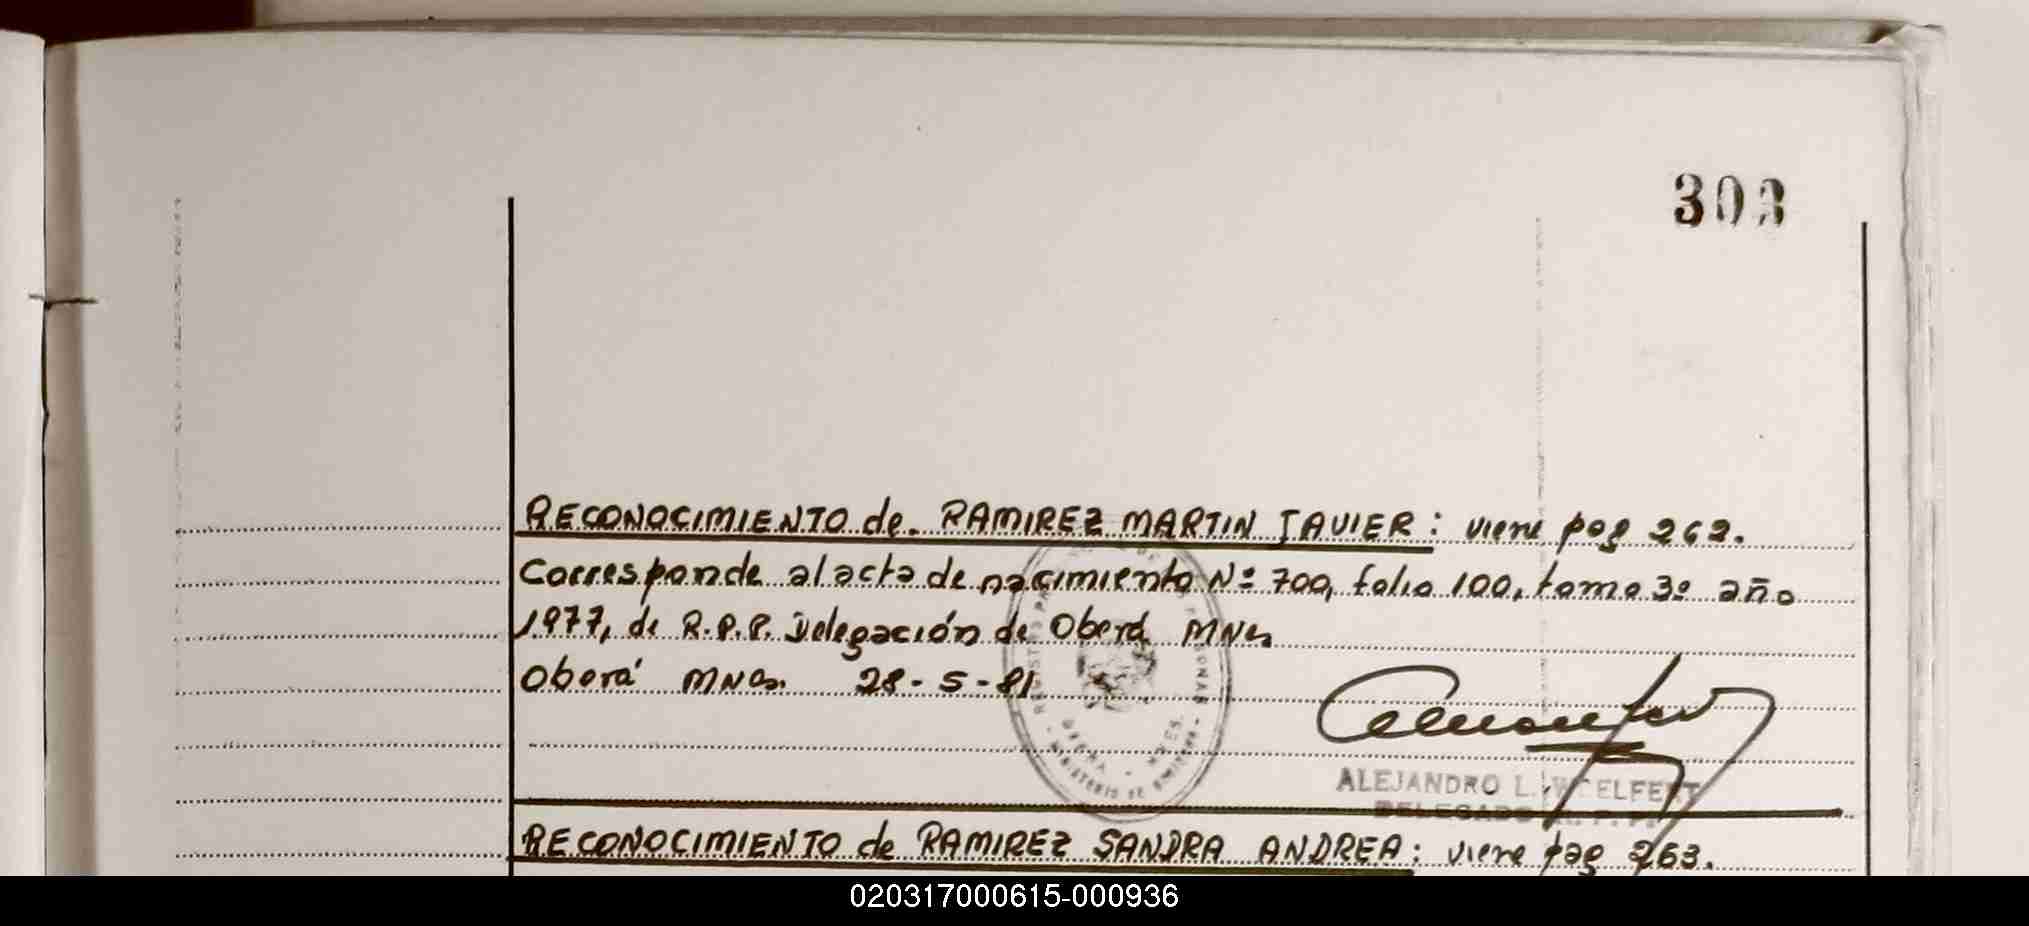 303
RECONOCIMIENTO de. RAMIREZ MARTIN JAVIER: viene pag 262.
Corresponde al acta de nacimiento Nº 700, folio 100, tomo 3º año
1977, de R.P.P. Delegación de Oberá MNes
Oberá MNes. 28-5-81
ALEJANDRO L. WOELFERT
DELEGADO R. P. P.
RECONOCIMIENTO de RAMIREZ SANDRA ANDREA: viene pag 263.
020317000615-000936